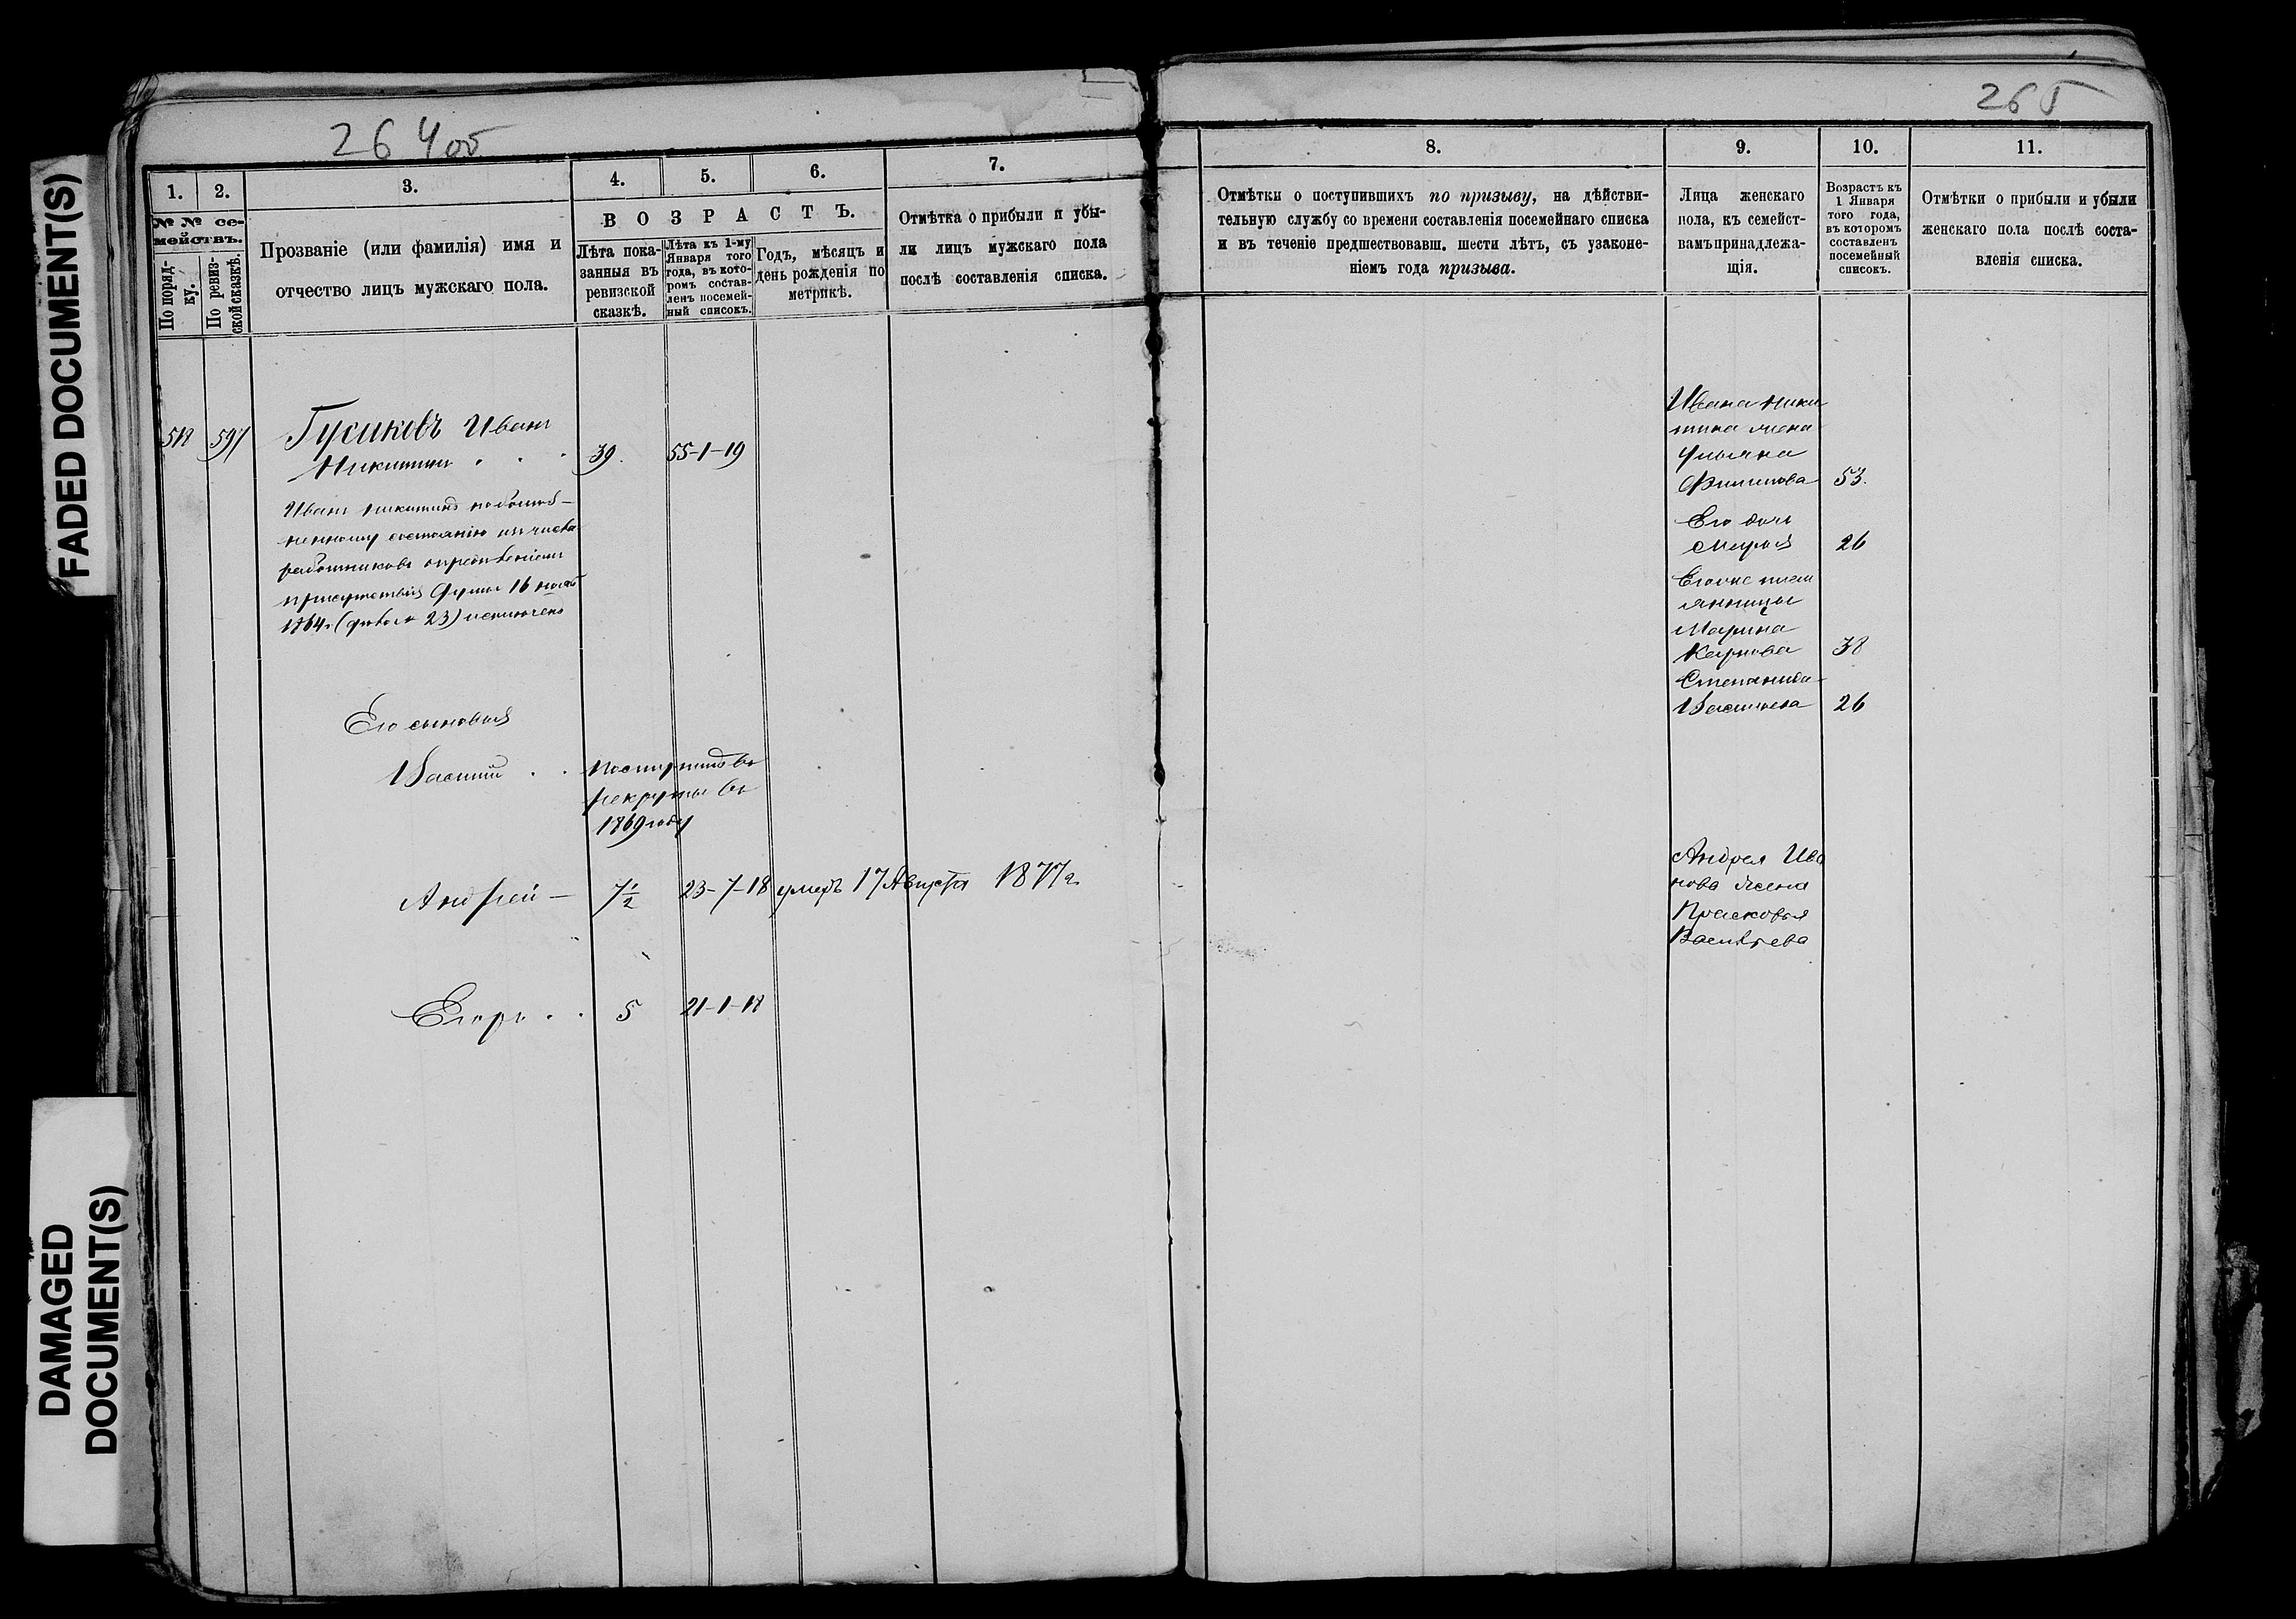 FADED DOCUMENT(S)
DAMAGED
DOCUMENT(S)
264об
1.
2.
3.
4.
5.
6.
7.
№ № се-
мействъ.
По поряд-
ку.
По ревиз-
ской сказкѣ.
Прозваніе (или фамилія) имя и
отчество лицъ мужскаго пола.
ВОЗРАСТЪ.
Лѣта пока-
занныя въ
ревизской
сказкѣ.
Лѣта къ 1-му
Января того
года, въ кото-
ромъ состав-
ленъ посемей-
ный списокъ.
Годъ, мѣсяцъ и
день рожденія по
метрикѣ.
Отмѣтка о прибыли и убы-
ли лицъ мужскаго пола
послѣ составленія списка.
518 597 Гусиковъ Иванъ
Никитинъ 39. 55-1-19
Иванъ Никитинъ по болѣз-
ненному состоянію изъ числа
работниковъ опредѣленіемъ
присутствія Думы 16
1864 г. ( 23) исключенъ
Его сыновья
Василій поступилъ въ
рекруты въ
1869 году
Андрей 7½ 23-7-18 умеръ 17 Августа 1877 г.
Егоръ 5 21-1-18
265
8.
9.
10.
11.
Отмѣтки о поступившихъ по призыву, на дѣйстви-
тельную службу со времени составленія посемейнаго списка
и въ теченіе предшествовавш. шести лѣтъ, съ узаконе-
ніемъ года призыва.
Лица женскаго
пола, къ семейст-
вамъ принадлежа-
щія.
Возрастъ къ
1 Января
того года,
въ которомъ
составленъ
посемейный
списокъ.
Отмѣтки о прибыли и убыли
женскаго пола послѣ соста-
вленія списка.
Ивана Ники
тина жена
Ульяна
Филипова 53.
Его дочь
Марья 26
Его же племян
янницы
Марина
Карпова 38
Степанида
Васильева 26
Андрея Ива
нова жена
Прасковья
Васильева